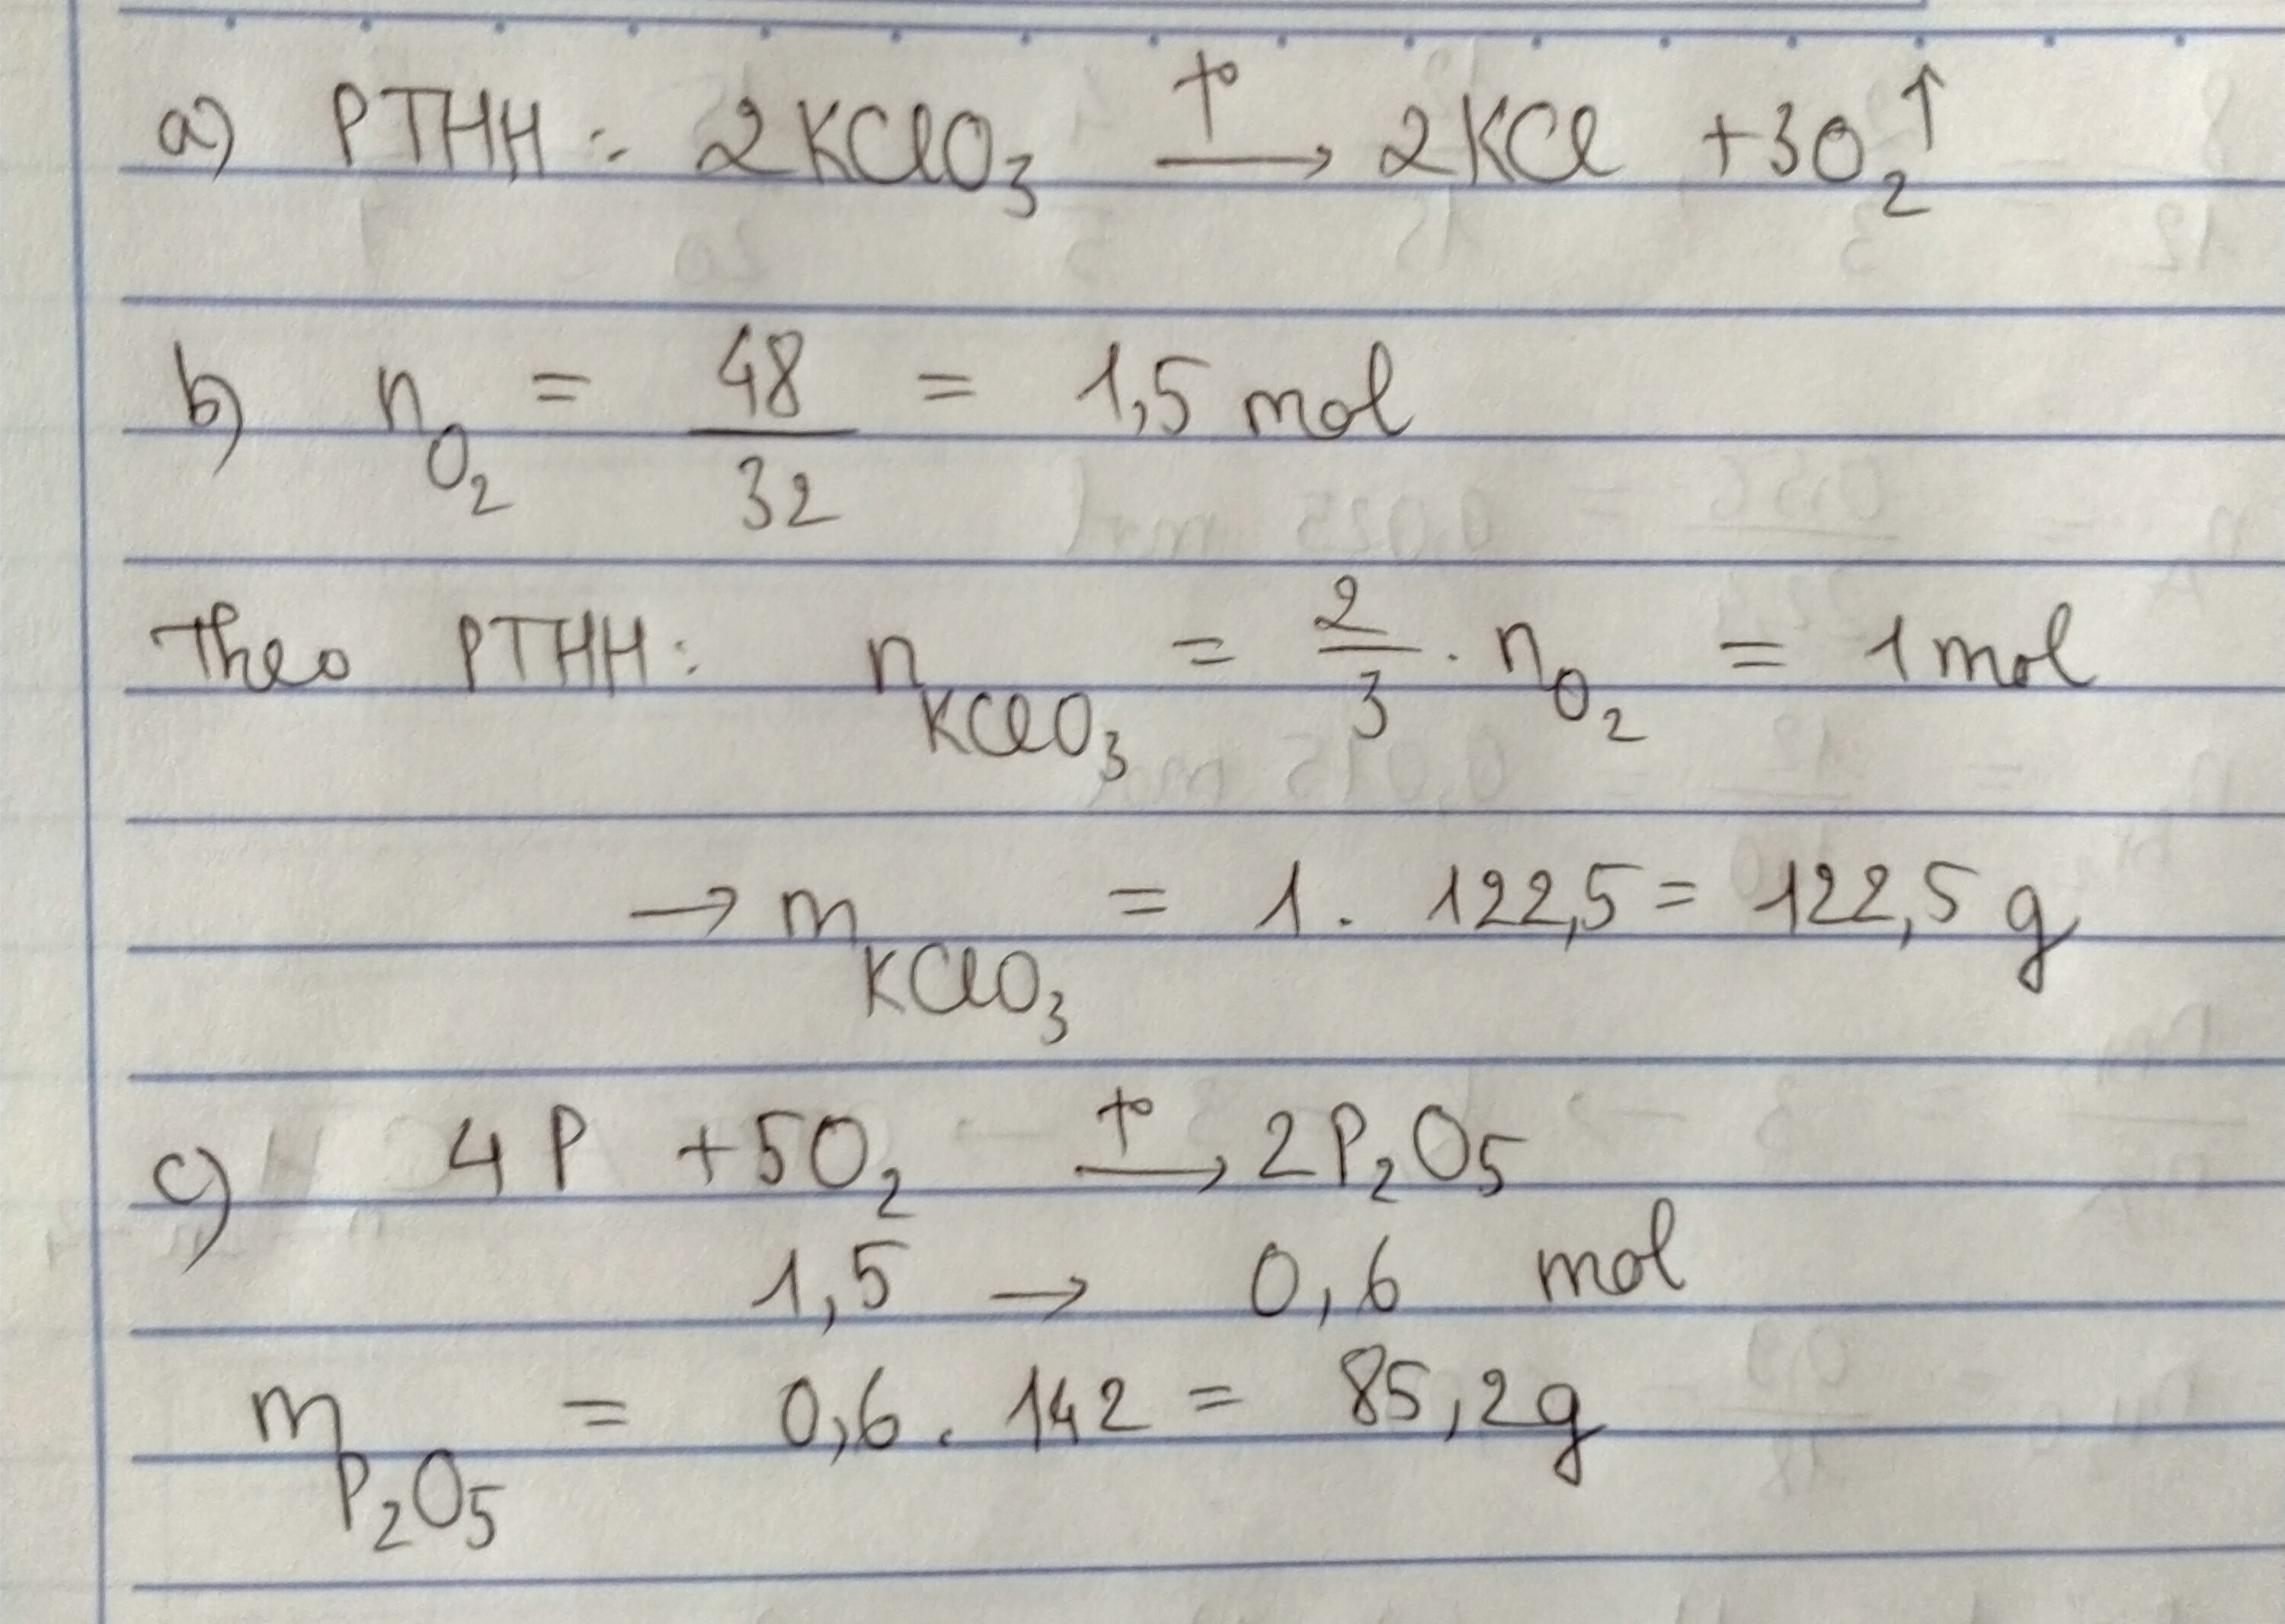 a) PTHH : 2KClO₃ t° → 2KCl + 3O₂ ↑
b) n O₂ = 48/32 = 1,5 mol
Theo PTHH : n KClO₃ = 2/3 . n O₂ = 1 mol
→ m KClO₃ = 1 . 122,5 = 122,5 g
c) 4P + 5O₂ t° → 2P₂O₅
1,5 → 0,6 mol
m P₂O₅ = 0,6 . 142 = 85,2g